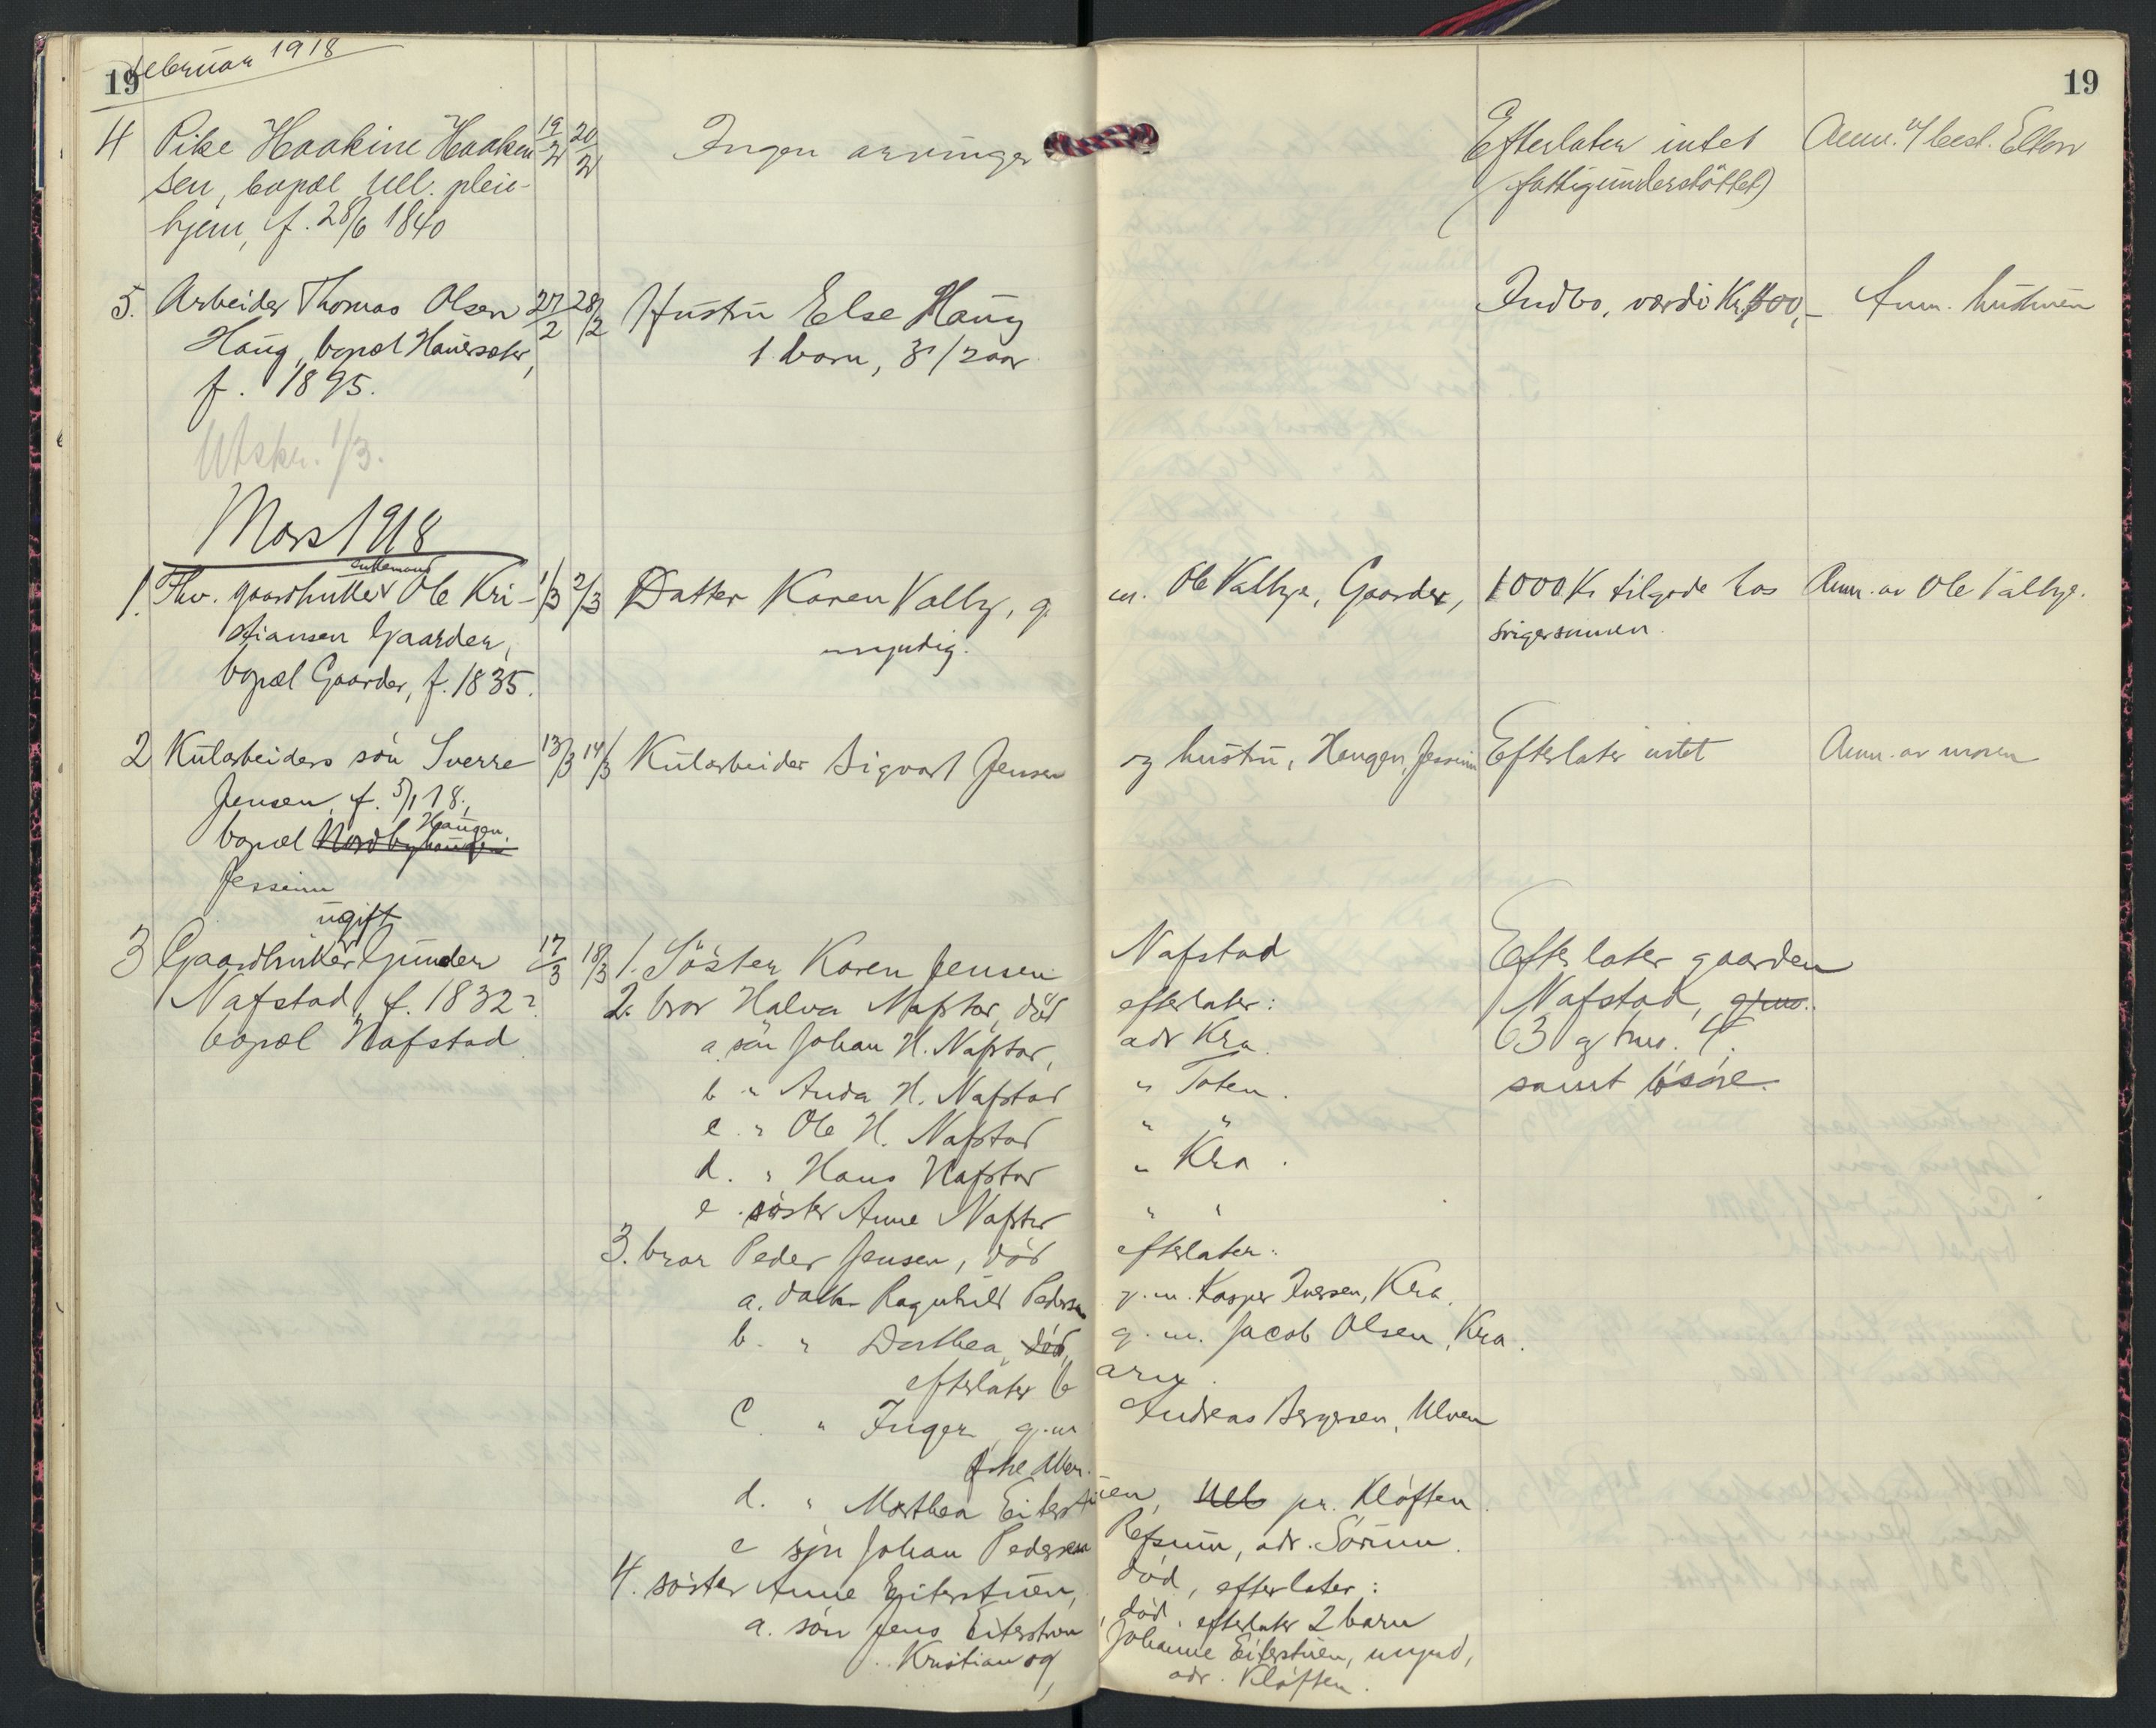 Februar 1918
19
19
4 Pike Haakine Haaken 19/2 20/2 Ingen arvinger Efterlater intet Anm. v/ best. Elton
sen, bopæl Ull. pleie- (fattigunderstöttet)
hjem, f. 28/6 1840
5. Arbeider Thomas Olsen 27/2 28/2 Hustru Else Haug Indbo, værdi Kr. 500,- Anm. hustruen
Haug, bopæl Hauerseter, 1 barn, 3 1/2 aar
f. 1895.
Utskr. 1/3.
Mars 1918
enkemand
1. Fhv. gaardbruker Ole Kri- 1/3 2/3 Datter Karen Valby, g. m. Ole Valbye, Gaarder, 1000 Kr tilgode hos Anm. av Ole Valbye.
stiansen Gaarder, myndig. svigersønnen.
bopæl Gaarder, f. 1835.
2 Kularbeiders søn Sverre 13/3 14/3 Kularbeider Sigvart Jensen og hustru, Haugen, Jesseim Efterlater intet Anm. av moren
Jensen, f. 5/1 18,
Haugen,
bopæl Nordbyhaugen
Jesseim
ugift
3 Gaardbruker Gunder 17/3 18/3 1. Søster Karen Jensen Nafstad Efterlater gaarden
Nafstad, f. 1832? 2. bror Halvor Nafstad, död efterlater: Nafstad, gnr.
bopæl Nafstad a. søn Johan H. Nafstad, adr Kra. 63 g bno. 4.
b " Anda H. Nafstad " Toten. samt løsøre.
c. " Ole H. Nafstad " "
d. " Hans Nafstad " Kra.
e. søster Anne Nafstad " "
3. bror Peder Jensen, död efterlater:
a. datter Ragnhild Pedersen g.m. Kasper Iversen, Kra.
b. " Dorthea, död, g.m. Jacob Olsen, Kra.
efterlater 6 arv.
C. " Inger, g.m Andreas Bergersen, Ulven
d. " Marthea Eiterstuen, Ull pr. Kløften.
e søn Johan Pedersen Refsum, adr. Sørum.
4. søster Anne Eiterstuen, død, efterlater:
a. søn Jens Eiterstuen, død, efterlater 2 barn
Kristian og Johanne Eiterstuen, mynd,
adr. Kløften.